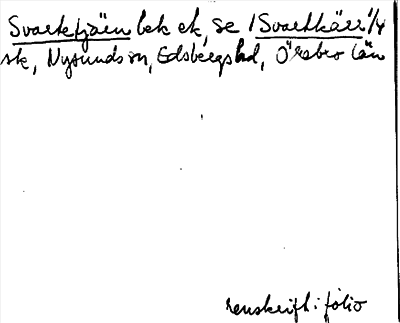 Svartkjäen bek ek, se 1 Svartkärr 1/4
sk, Nysunds sn, Edsbergs hd, Örebro län
renskrift i folio